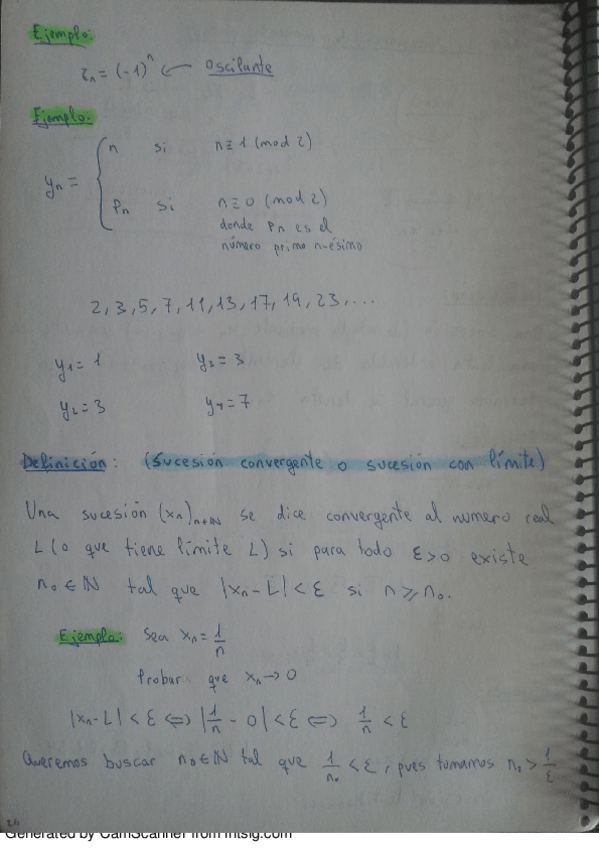 Ejemplo:
z_n = (-1)^n ← Oscilante
Ejemplo:
y_n = { n si n ≡ 1 (mod 2)
P_n si n ≡ 0 (mod 2)
donde P_n es el
número primo n-ésimo
2, 3, 5, 7, 11, 13, 17, 19, 23, ...
y_1 = 1 y_3 = 3
y_2 = 3 y_4 = 7
Definición: (Sucesión convergente o sucesión con límite)
Una sucesión (x_n)_{n∈ℕ} se dice convergente al numero real
L (o que tiene límite L) si para todo ε > 0 existe
n_0 ∈ ℕ tal que |x_n - L| < ε si n ≥ n_0.
Ejemplo: Sea x_n = 1/n
Probar que x_n → 0
|x_n - L| < ε ⟺ |1/n - 0| < ε ⟺ 1/n < ε
Queremos buscar n_0 ∈ ℕ tal que 1/n_0 < ε, pues tomamos n_0 > 1/ε
Generated by CamScanner from intsig.com